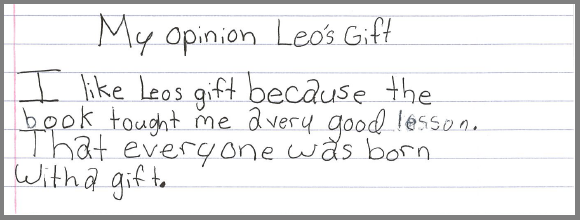 My opinion Leo's Gift
I like Leos gift because the
book tought me a very good lesson.
That everyone was born
with a gift.